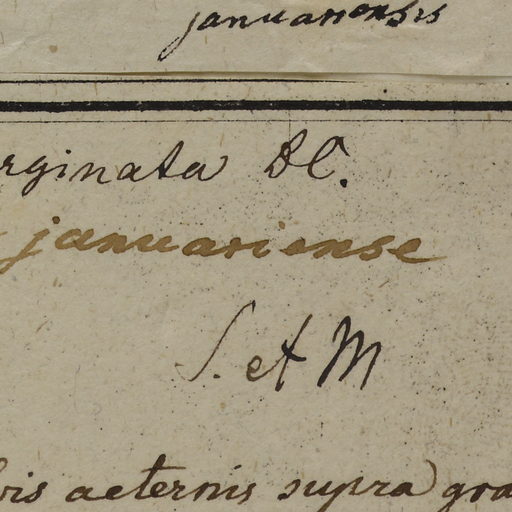 januariensis
rginata DC.
januariense
S. et M
bis aeternis supra gra